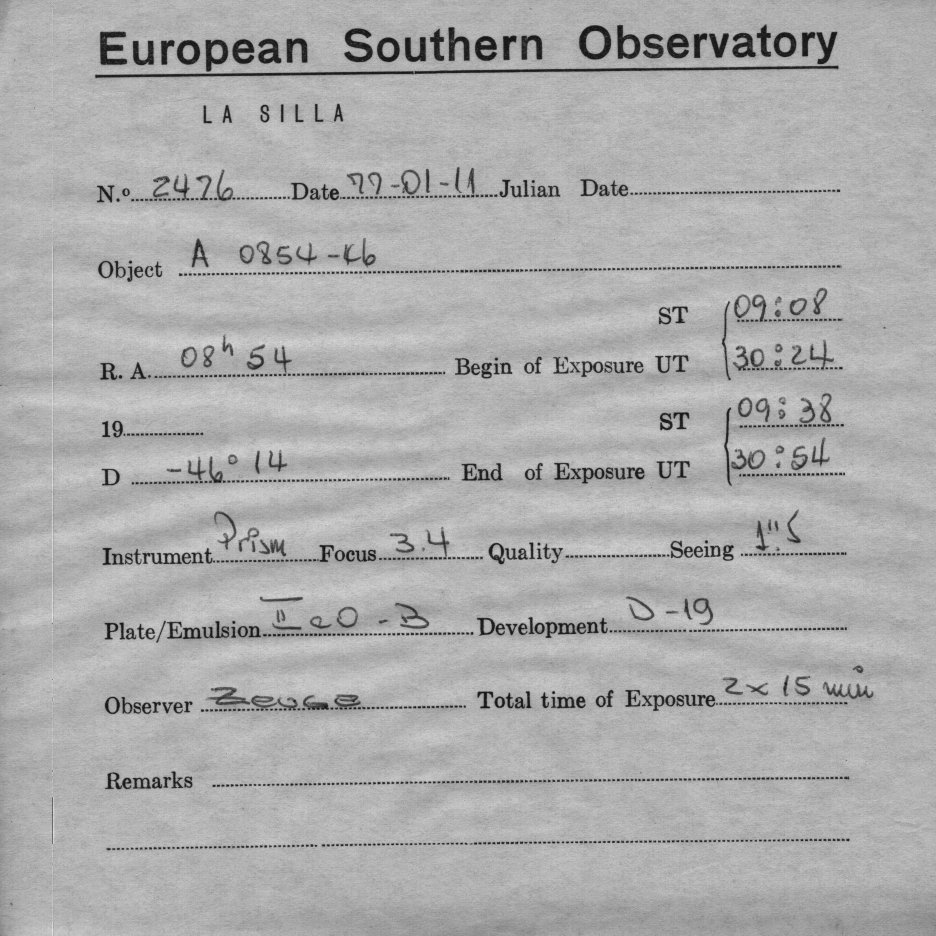 European Southern Observatory
LA SILLA
N.º 2476 Date 77-01-11 Julian Date
Object A 0854-46
ST 09:08
R. A. 08h 54 Begin of Exposure UT 30:24
19 ST 09:38
D -46° 14 End of Exposure UT 30:54
Instrument Prism Focus 3.4 Quality Seeing 1".5
Plate/Emulsion IIaO - B Development D-19
Observer Total time of Exposure 2x15 min
Remarks